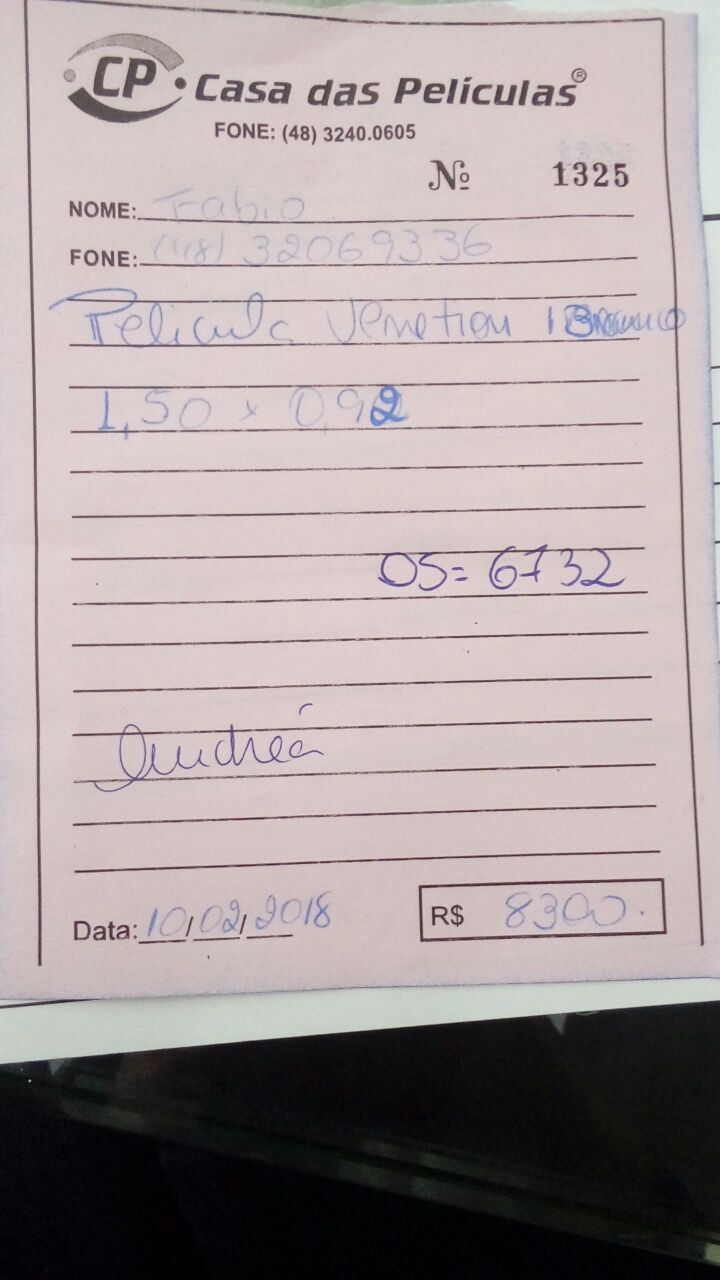 CP Casa das Películas®
FONE: (48) 3240.0605
Nº 1325
NOME: Fabio
FONE: (48) 32069336
Pelicula Venetian Branco
1,50 x 0,92
OS= 6732
Andréa
Data: 10/02/2018 R$ 8300.